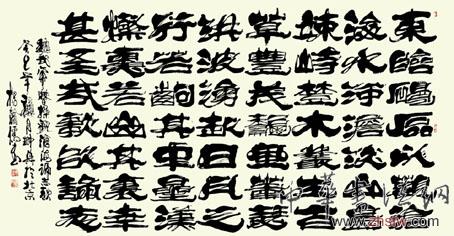 東臨碣石以觀滄
海水何澹澹山島
竦峙樹木叢生百
草豐茂秋風蕭瑟
洪波湧起日月之
行若出其中星漢
燦爛若出其裏幸
甚至哉歌以詠志
魏武帝曹操觀滄海
癸巳年臘月於北京
中華書法網